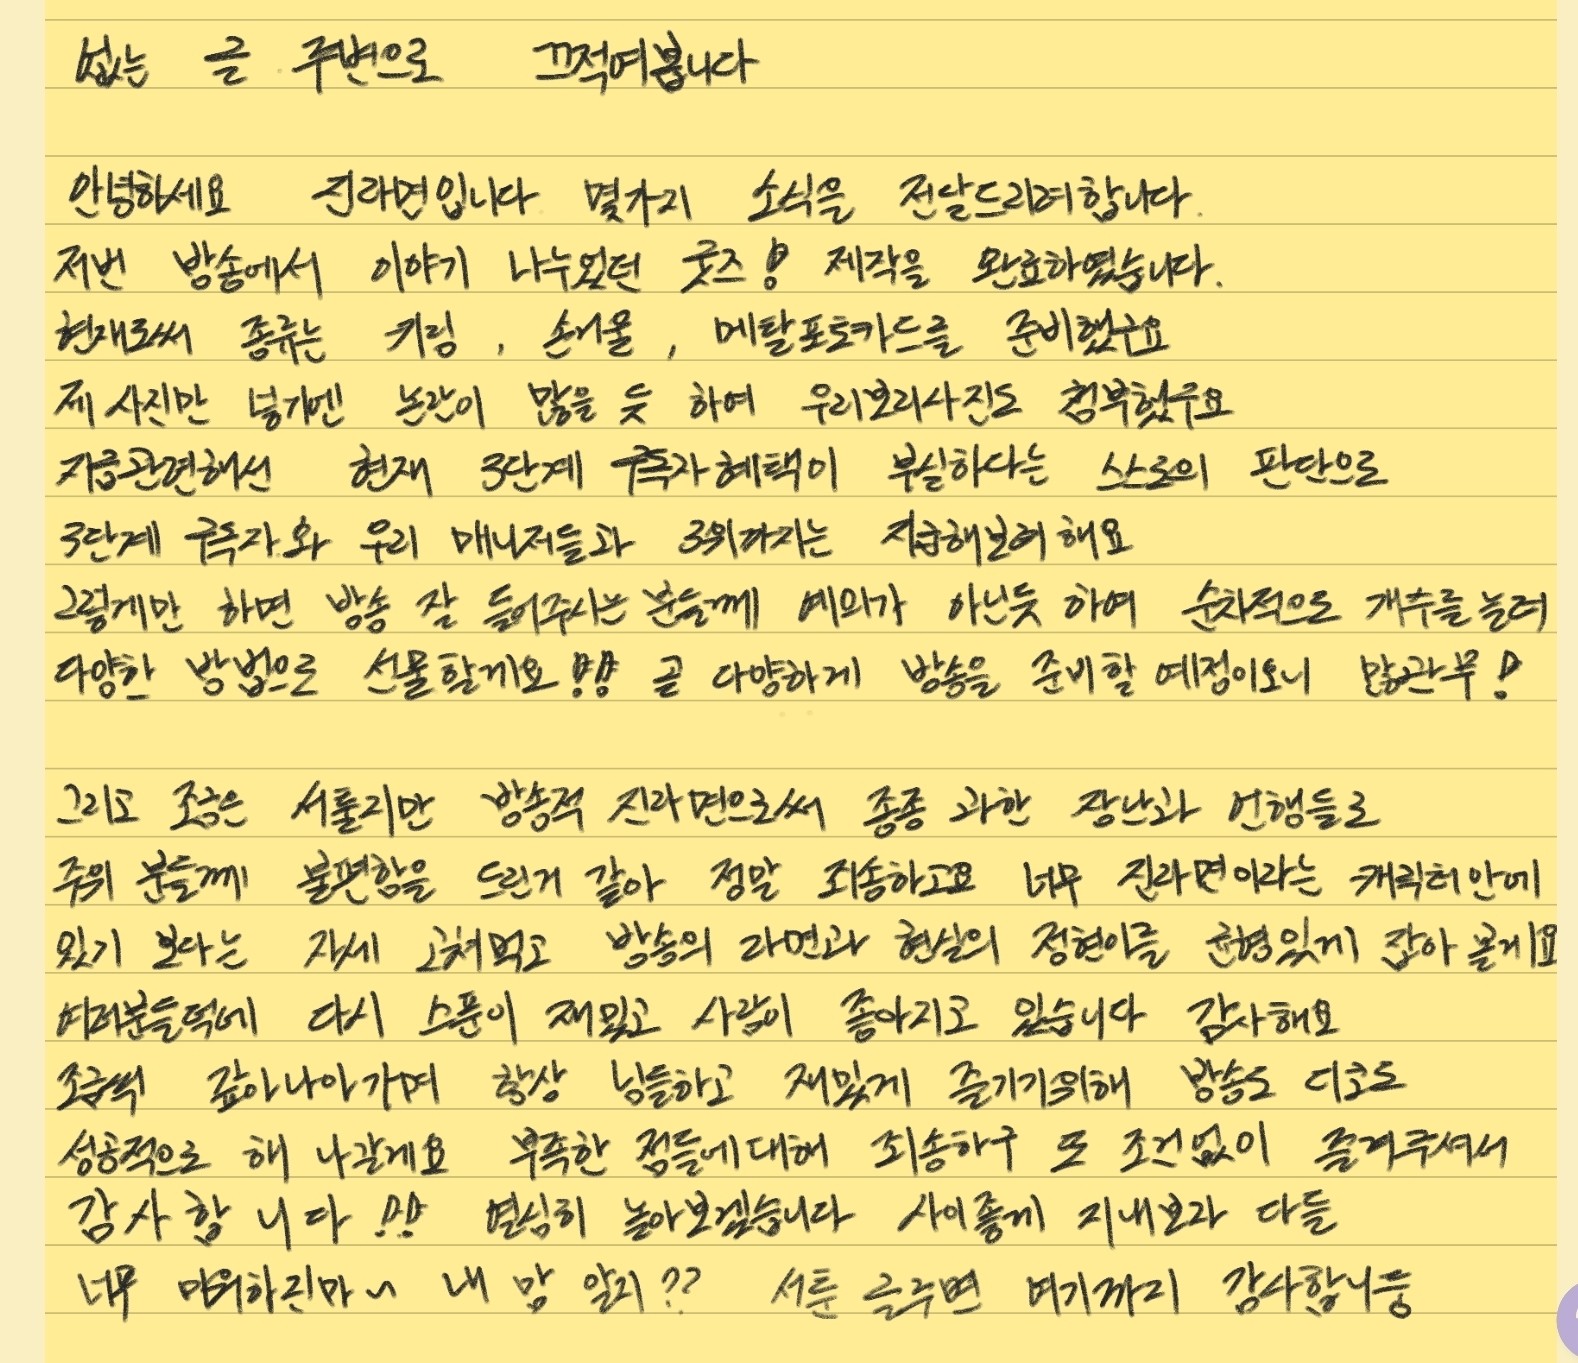 없는 글 주변으로 끄적여봅니다
안녕하세요 진라면입니다 몇가지 소식을 전달드리려합니다.
저번 방송에서 이야기 나누었던 굿즈! 제작을 완료하였습니다.
현재로써 종류는 키링, 손거울, 메탈포토카드를 준비했구요
제 사진만 넣기엔 논란이 많을 듯 하여 우리보리사진도 첨부했구요
지급관련해선 현재 3단계 구독자혜택이 부실하다는 스스로의 판단으로
3단계 구독자와 우리 매니저들과 3위까지는 지급해보려 해요
그렇게만 하면 방송 잘 들어주시는 분들께 예의가 아닌듯 하여 순차적으로 개수를 늘려
다양한 방법으로 선물할게요!! 곧 다양하게 방송을 준비할 예정이오니 많관부!
그리고 조금은 서툴지만 방송적 진라면으로써 종종 과한 장난과 언행들로
주위 분들께 불편함을 드린거 같아 정말 죄송하고요 너무 진라면이라는 캐릭터안에
있기 보다는 자세 고쳐먹고 방송의 라면과 현실의 정현이를 균형있게 잡아 볼게요
여러분들덕에 다시 스푼이 재밌고 사람이 좋아지고 있습니다 감사해요
조금씩 갚아나아가며 항상 님들하고 재밌게 즐기기위해 방송도 디코도
성공적으로 해 나갈게요 부족한 점들에대해 죄송하구 또 조건없이 즐겨주셔서
감사합니다!! 열심히 놀아보겠습니다 사이좋게 지내보자 다들
너무 미워하진마~ 내 맘 알지?? 서툰 글주변 여기까지 감사합니둥